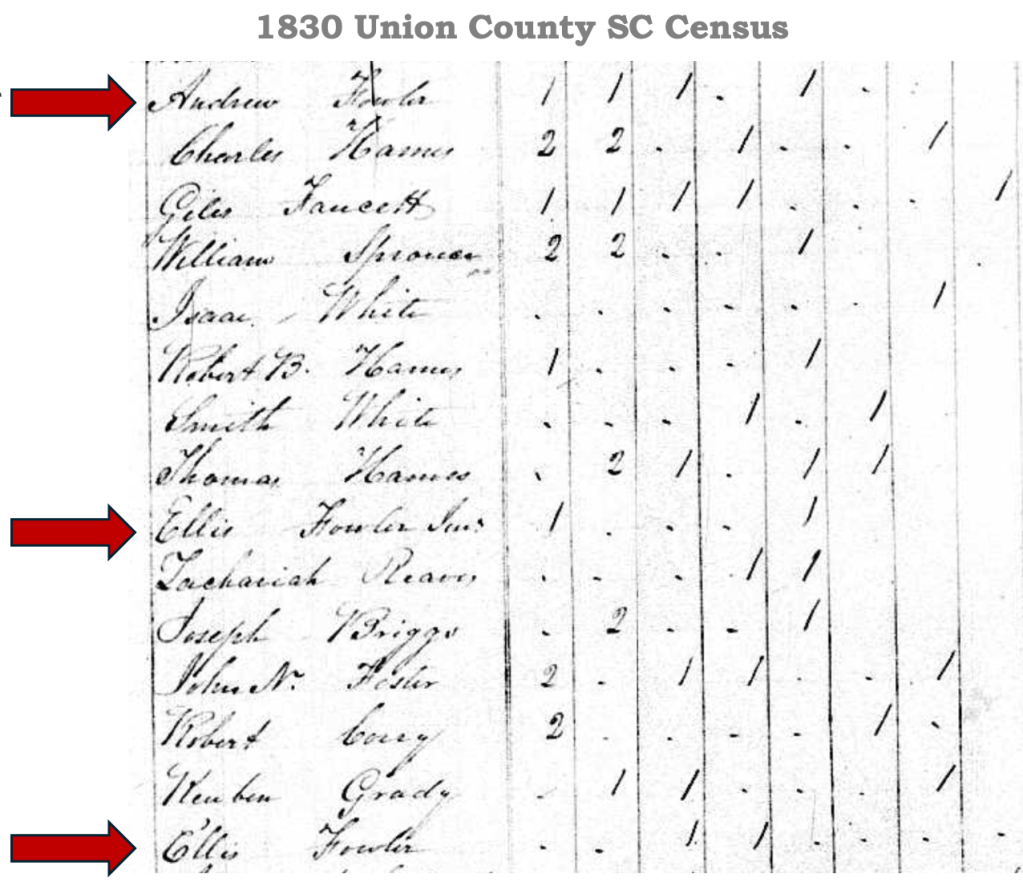 1830 Union County SC Census
Andrew Fowler 1 1 1 . 1
Charles Hames 2 2 . 1 . . 1
Giles Faucett 1 1 1 1 . . . 1
William Sprouse 2 2 . . 1
Isaac White . . . . . . 1
Robert B. Hames 1 . . . 1
Smith White . . . 1 . 1
Thomas Hames . 2 1 . 1 1
Ellis Fowler Junr 1 . . . 1
Zachariah Reaves . . . 1 1
Joseph Briggs . 2 . . 1
John N. Foster 2 . 1 1 . . 1
Robert 2 . . . . 1 .
Reuben Grady . 1 1 . . . 1
Ellis Fowler . . 1 1 . . . .